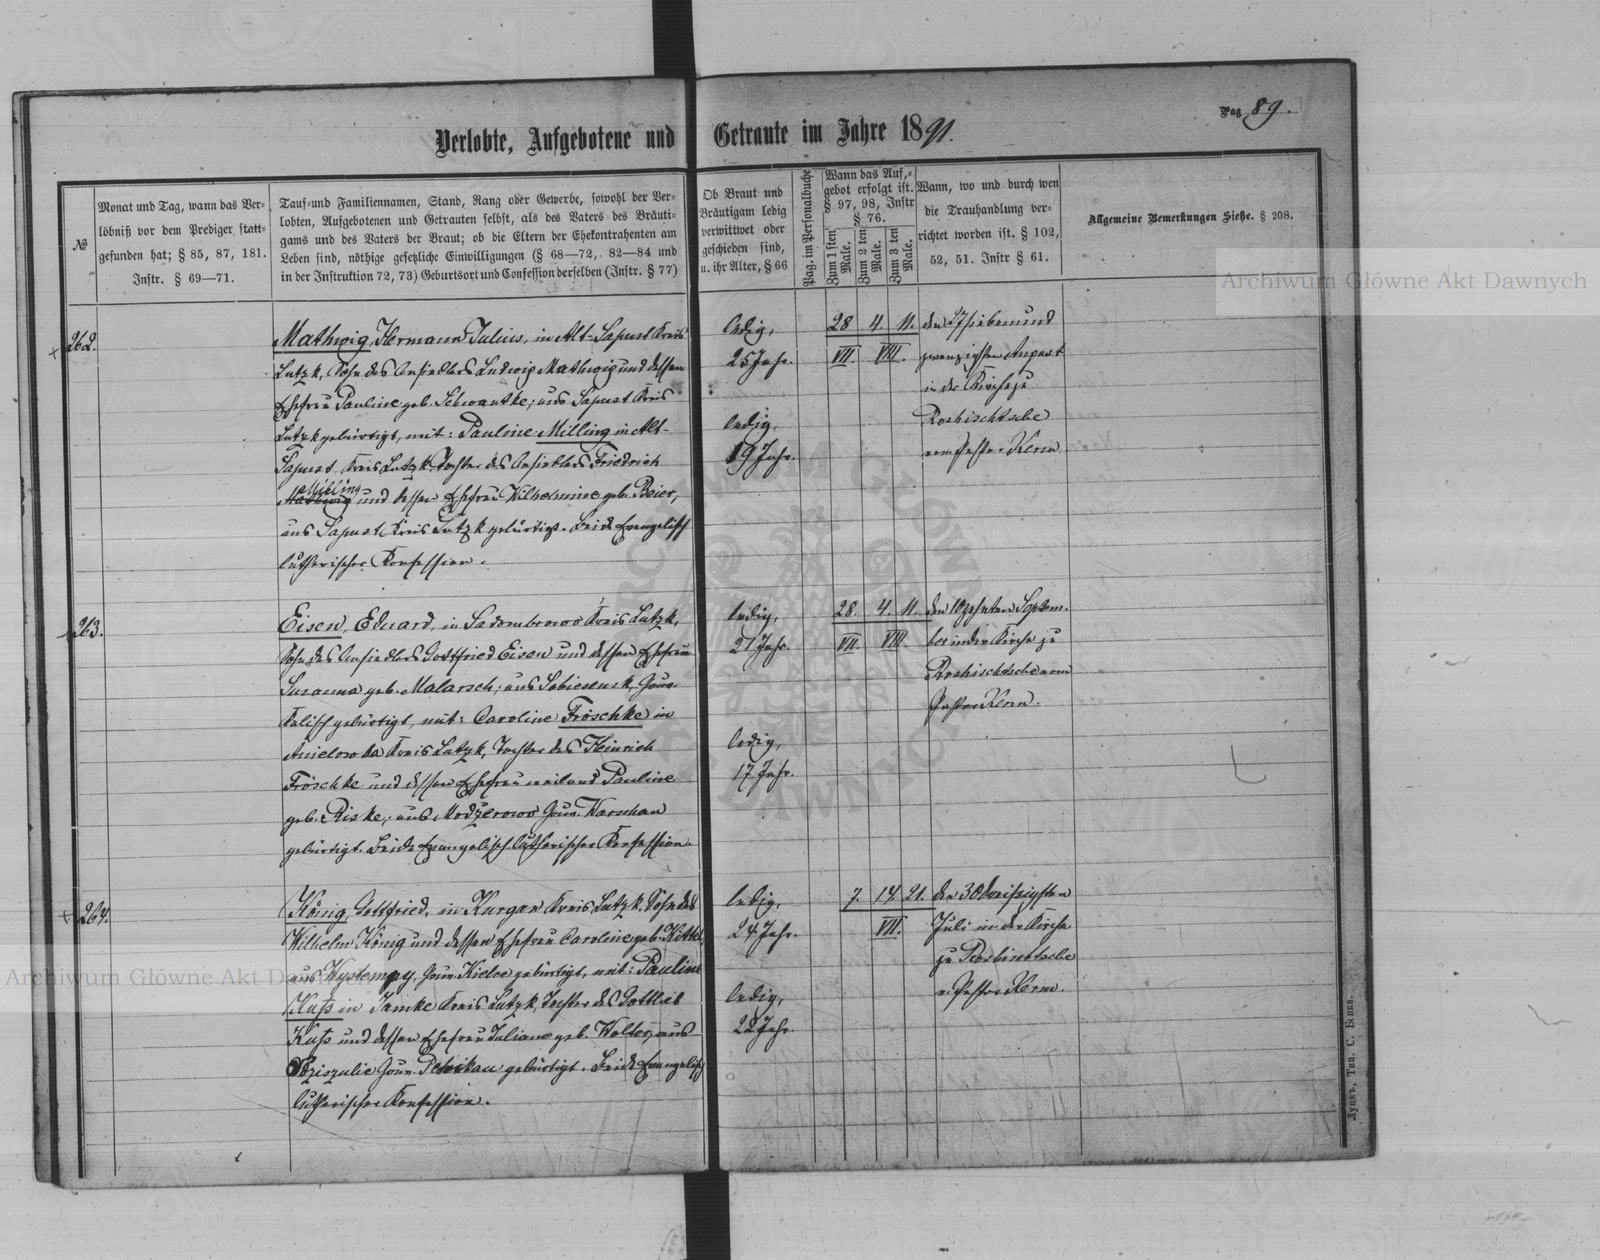 Pag. 89.
Verlobte, Aufgebotene und Getraute im Jahre 1891.
№
Monat und Tag, wann das Ver-
löbniß vor dem Prediger statt-
gefunden hat; § 85, 87, 181.
Instr. § 69—71.
Tauf- und Familiennamen, Stand, Rang oder Gewerbe, sowohl der Ver-
lobten, Aufgebotenen und Getrauten selbst, als des Vaters des Bräuti-
gams und des Vaters der Braut; ob die Eltern der Ehekontrahenten am
Leben sind, nöthige gesetzliche Einwilligungen (§ 68—72, 82—84 und
in der Instruktion 72, 73) Geburtsort und Confession derselben (Instr. § 77)
Ob Braut und
Bräutigam ledig
verwittwet oder
geschieden sind,
u. ihr Alter, § 66
Pag. im Personalbuche
Wann das Auf-
gebot erfolgt ist.
§ 97, 98, Instr
§ 76.
Zum 1 sten
Male.
Zum 2 ten
Male.
Zum 3 ten
Male.
Wann, wo und durch wen
die Trauhandlung ver-
richtet worden ist. § 102,
52, 51. Instr § 61.
Allgemeine Bemerkungen Siehe. § 208.
Archiwum Główne Akt Dawnych
262.
Mathwig, Hermann Julius, in Alt-Sapust Kreis
Lutzk, Sohn des Ansiedlers Ludwig Mathwig und dessen
Ehefrau Pauline geb. Schwantke; aus Sapust Kreis
Lutzk gebürtigt, mit: Pauline Milling in Alt-
Sapust, Kreis Lutzk, Tochter des Ansiedlers Friedrich
Milling
Mathwig und dessen Ehefrau Wilhelmine geb. Beier,
aus Sapust Kreis Lutzk gebürtigt. Beide Evangelisch
lutherischer Konfession.
ledig,
25 Jahr.
ledig,
19 Jahr.
28 4. 11.
VII. VIII.
den 27 siebenund
zwanzigsten August
in der Kirche zu
Roshischtsche
vom Pastor Kern.
263.
Eisen, Eduard, in Sadombrowo Kreis Lutzk,
Sohn des Ansiedlers Gottfried Eisen und dessen Ehefrau
Susanna geb. Malarsch; aus Sobiesensk, Gouv.
Kalisch gebürtigt, mit: Caroline Fröschke in
Anielowka Kreis Lutzk, Tochter des Heinrich
Fröschke und dessen Ehefrau weiland Pauline
geb. Riske; aus Modzerowo Gouv. Warschau
gebürtigt. Beide Evangelisch-lutherischer Konfession.
ledig,
21 Jahr.
ledig,
17 Jahr.
28. 4. 11.
VII. VIII.
den 10 zehnten Septem-
ber in der Kirche zu
Roshischtsche vom
Pastor Kern.
264.
König, Gottfried, in Kurgan Kreis Lutzk, Sohn des
Wilhelm König und dessen Ehefrau Caroline geb. Kittel,
aus Wystempy, Gouv. Kielce gebürtigt, mit: Pauline
Kuß in Janike Kreis Lutzk, Tochter des Gottlieb
Kuß und dessen Ehefrau Juliane geb. Wolter, aus
Gouv. Petrikau gebürtigt. Beide Evangelisch
lutherischer Konfession.
ledig,
24 Jahr.
ledig,
22 Jahr
7. 14. 21.
VII.
den 30 dreißigsten
Juli in der Kirche
zu Roshischtsche
v. Pastor Kern.
Archiwum Główne Akt Dawnych
Луцкъ, Тип. С. Бока.